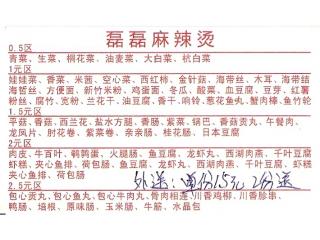 磊磊麻辣烫
0.5区
青菜、生菜、桐花菜、油麦菜、大白菜、杭白菜
1元区
娃娃菜、香菜、米茜、空心菜、西红柿、金针菇、海带丝、木耳、海带结
海哲丝、方便面、新竹米粉、鸡蛋面、冬瓜、酸菜、血豆腐、豆芽、红薯
粉丝、腐竹、宽粉、兰花干、油豆腐、香干、响铃、葱花鱼丸、蟹肉棒、鱼竹轮
1.5元区
平菇、香菇、西兰花、盐水方腿、香肠、紫菜、锅巴、香菇贡丸、午餐肉、
龙凤片、肘花卷、紫菜卷、亲亲肠、桂花肠、日本豆腐
2元区
肉皮、牛百叶、鹌鹑蛋、火腿肠、鱼豆腐、龙虾丸、西湖肉燕、千叶豆腐
虾糕、夹心鱼排、荷包肠、鱼豆腐、龙虾丸、西湖肉燕、千叶豆腐、虾糕
夹心鱼排、荷包肠
外送:单份15元 2份送
2.5元区
包心贡丸、包心鱼丸、包心牛肉丸、骨肉相连、川香鸡柳、川香脎串、
鸭肠、培根、原味肠、玉米肠、牛筋、水晶包